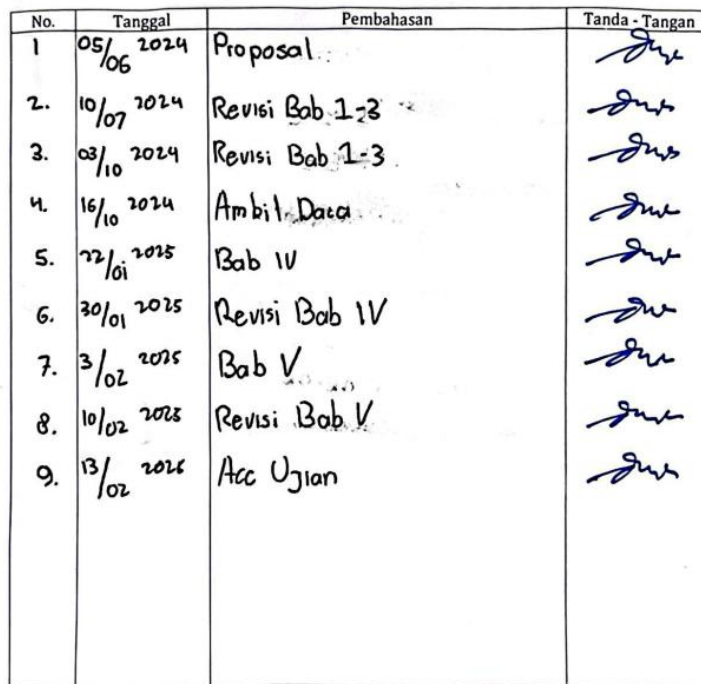 No. Tanggal Pembahasan Tanda - Tangan
1 05/06 2024 Proposal
2. 10/07 2024 Revisi Bab 1-3
3. 03/10 2024 Revisi Bab 1-3
4. 16/10 2024 Ambil Data
5. 22/01 2025 Bab IV
6. 30/01 2025 Revisi Bab IV
7. 3/02 2025 Bab V
8. 10/02 2025 Revisi Bab V
9. 13/02 Acc Ujian